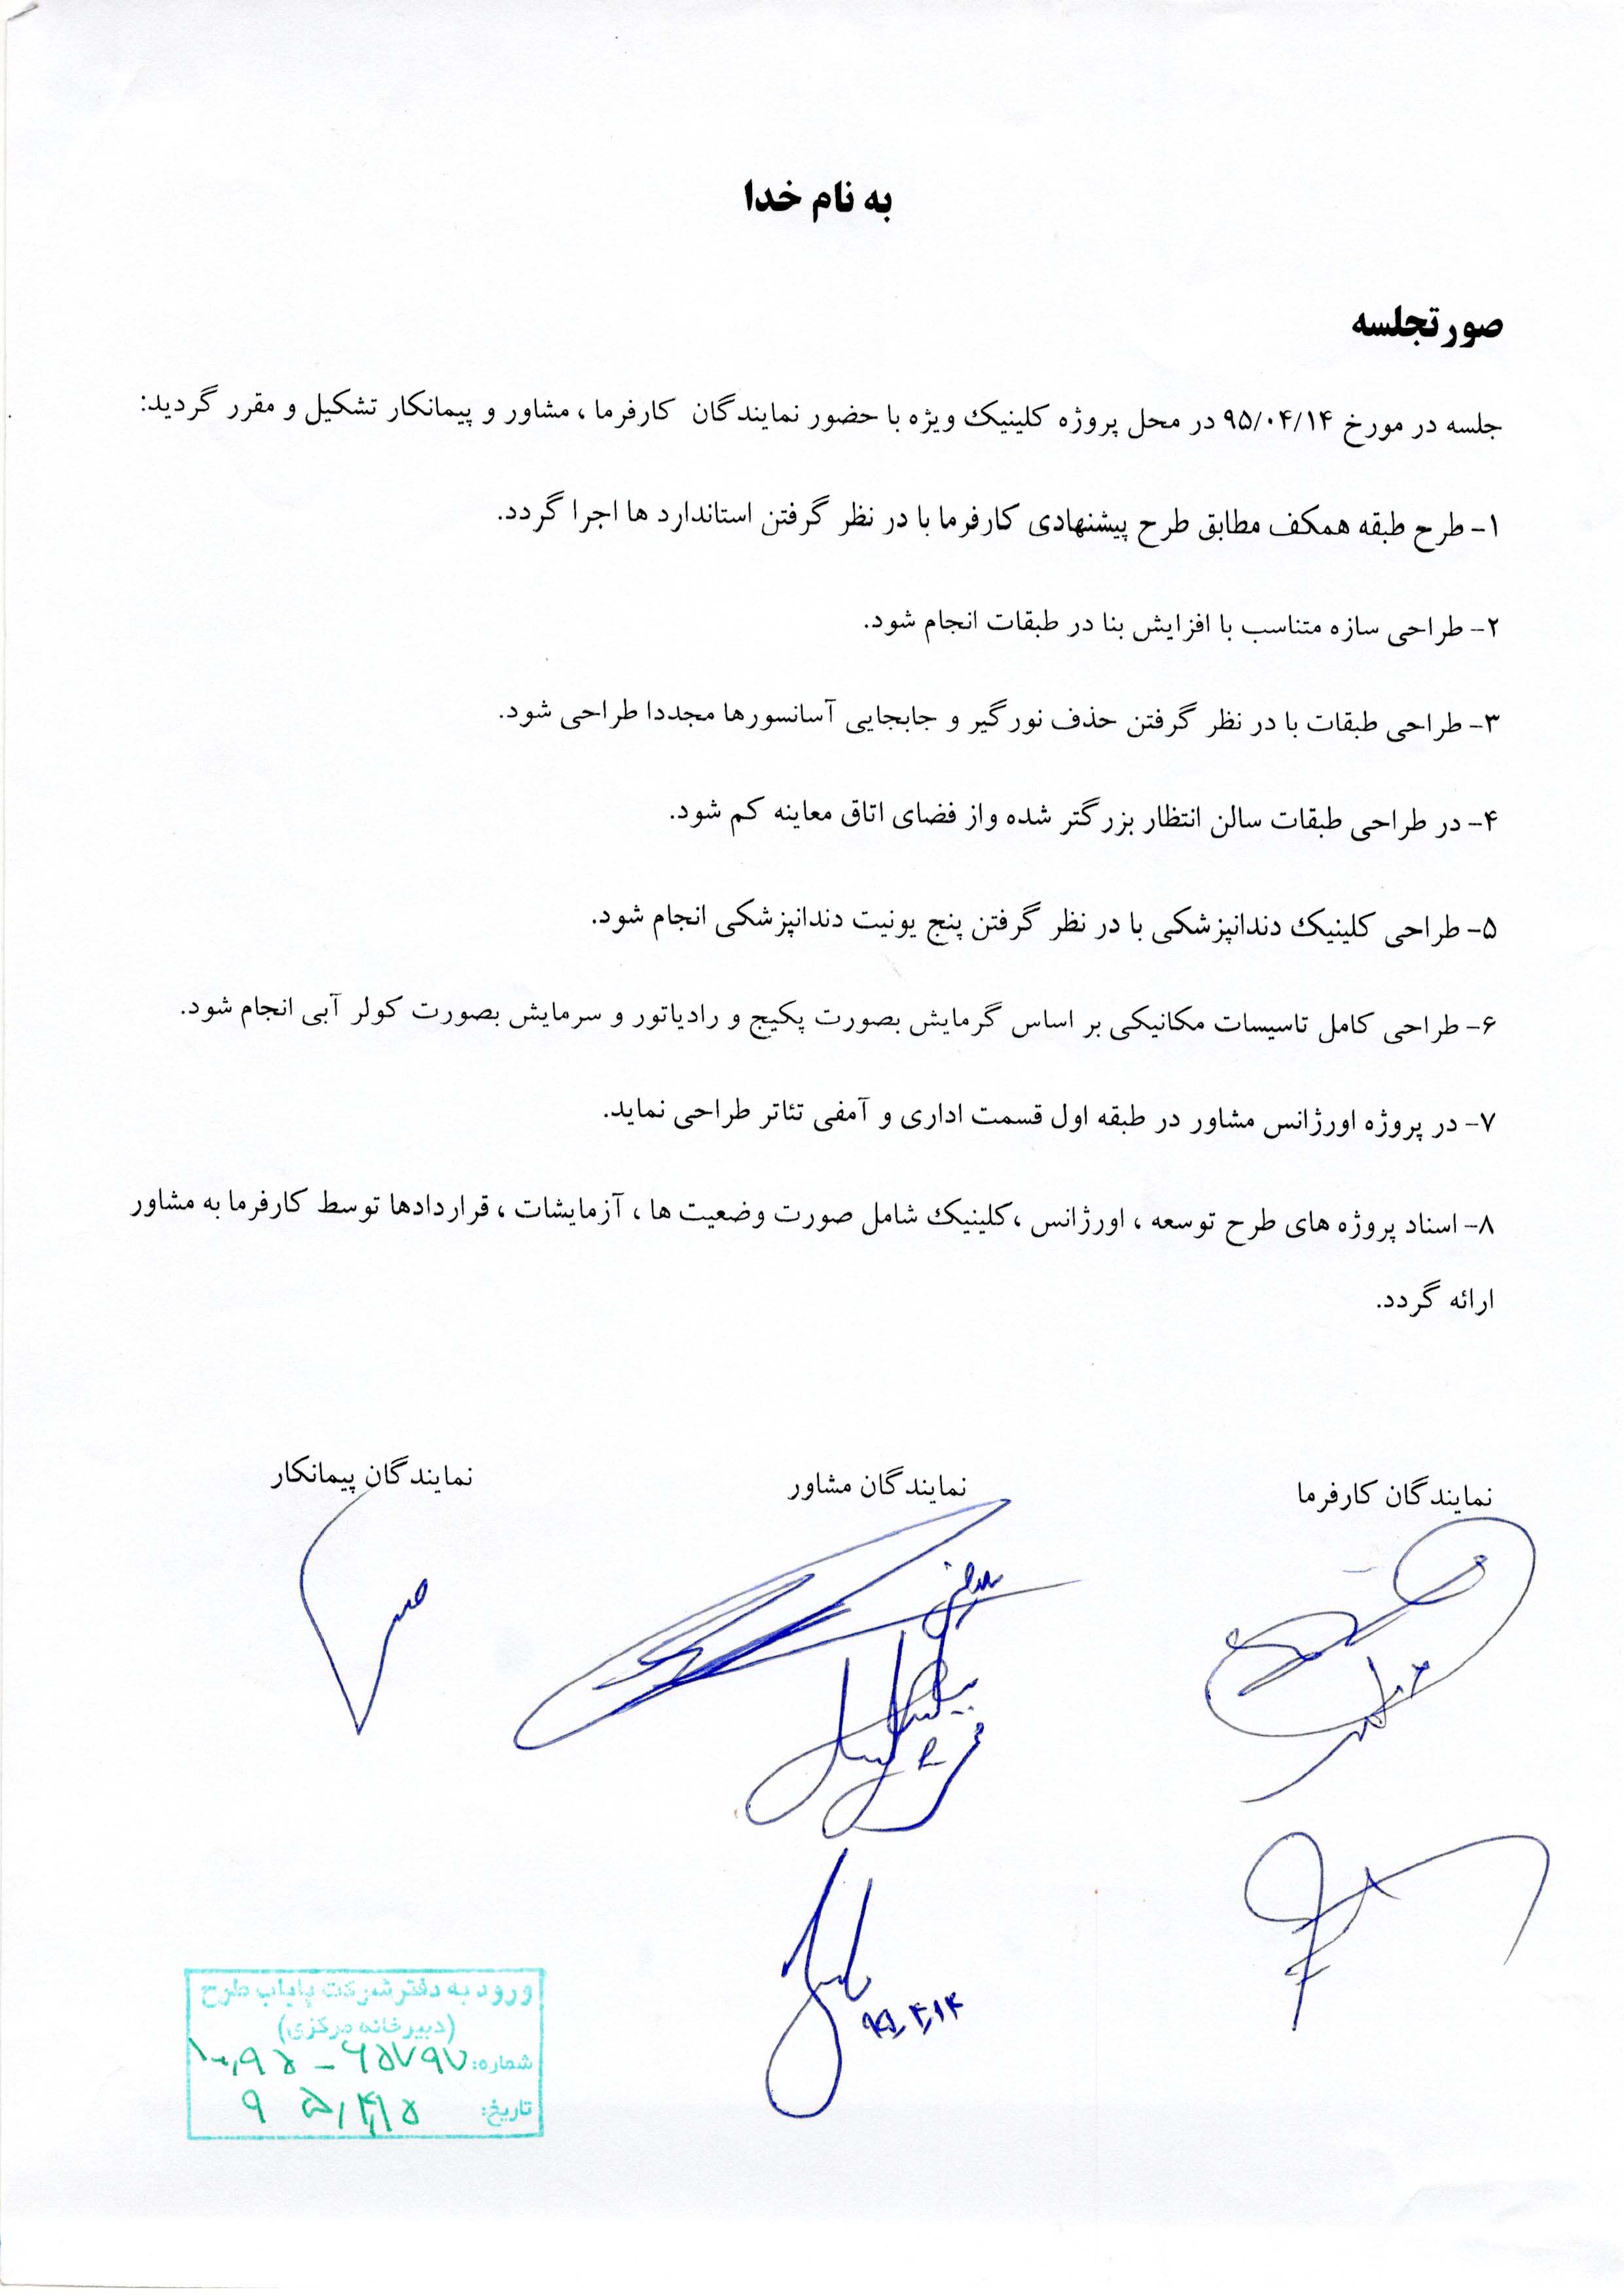 به نام خدا
صورتجلسه
جلسه در مورخ ۹۵/۰۴/۱۴ در محل پروژه کلینیک ویژه با حضور نمایندگان کارفرما ، مشاور و پیمانکار تشکیل و مقرر گردید:
۱- طرح طبقه همکف مطابق طرح پیشنهادی کارفرما با در نظر گرفتن استاندارد ها اجرا گردد.
۲- طراحی سازه متناسب با افزایش بنا در طبقات انجام شود.
۳- طراحی طبقات با در نظر گرفتن حذف نورگیر و جابجایی آسانسورها مجددا طراحی شود.
۴- در طراحی طبقات سالن انتظار بزرگتر شده واز فضای اتاق معاینه کم شود.
۵- طراحی کلینیک دندانپزشکی با در نظر گرفتن پنج یونیت دندانپزشکی انجام شود.
۶- طراحی کامل تاسیسات مکانیکی بر اساس گرمایش بصورت پکیج و رادیاتور و سرمایش بصورت کولر آبی انجام شود.
۷- در پروژه اورژانس مشاور در طبقه اول قسمت اداری و آمفی تئاتر طراحی نماید.
۸- اسناد پروژه های طرح توسعه ، اورژانس ،کلینیک شامل صورت وضعیت ها ، آزمایشات ، قراردادها توسط کارفرما به مشاور
ارائه گردد.
نمایندگان کارفرما نمایندگان مشاور نمایندگان پیمانکار
۹۵,۴,۱۴
ورود به دفتر شرکت پایاب طرح
(دبیرخانه مرکزی)
شماره:
تاریخ: ۹۵,۴,۱۵